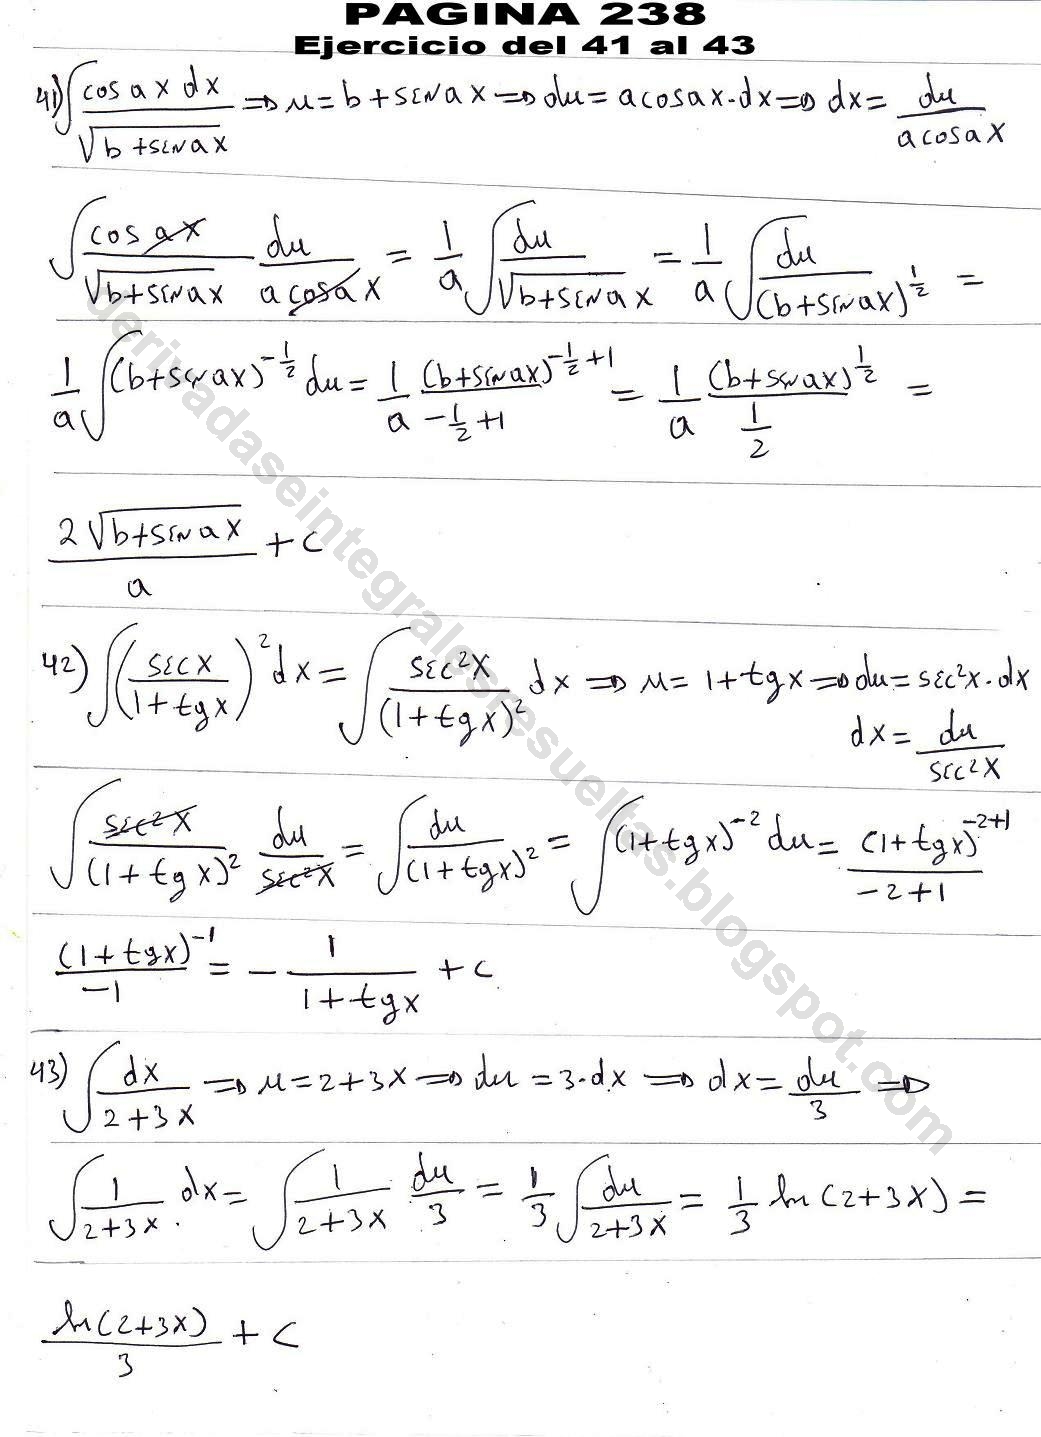 PAGINA 238
Ejercicio del 41 al 43
41) ∫ cos ax dx / √(b+senax) ⇒ u = b + senax ⇒ du = a cosax · dx ⇒ dx = du / a cosax
∫ cos ax / √(b+senax) du / a cosax = 1/a ∫ du / √(b+senax) = 1/a ∫ du / (b+senax)^(1/2) =
1/a ∫ (b+senax)^(-1/2) du = 1/a (b+senax)^(-1/2+1) / -1/2+1 = 1/a (b+senax)^(1/2) / 1/2 =
2√(b+senax) / a + C
42) ∫ (secx / 1+tgx)^2 dx = ∫ sec²x / (1+tgx)² dx ⇒ u = 1+tgx ⇒ du = sec²x · dx
dx = du / sec²x
∫ sec²x / (1+tgx)² du / sec²x = ∫ du / (1+tgx)² = ∫ (1+tgx)^(-2) du = (1+tgx)^(-2+1) / -2+1
(1+tgx)^(-1) / -1 = - 1 / 1+tgx + C
43) ∫ dx / 2+3x ⇒ u = 2+3x ⇒ du = 3·dx ⇒ dx = du / 3 ⇒
∫ 1 / 2+3x dx = ∫ 1 / 2+3x du / 3 = 1/3 ∫ du / 2+3x = 1/3 ln(2+3x) =
ln(2+3x) / 3 + C
derivadaseintegralesresueltas.blogspot.com